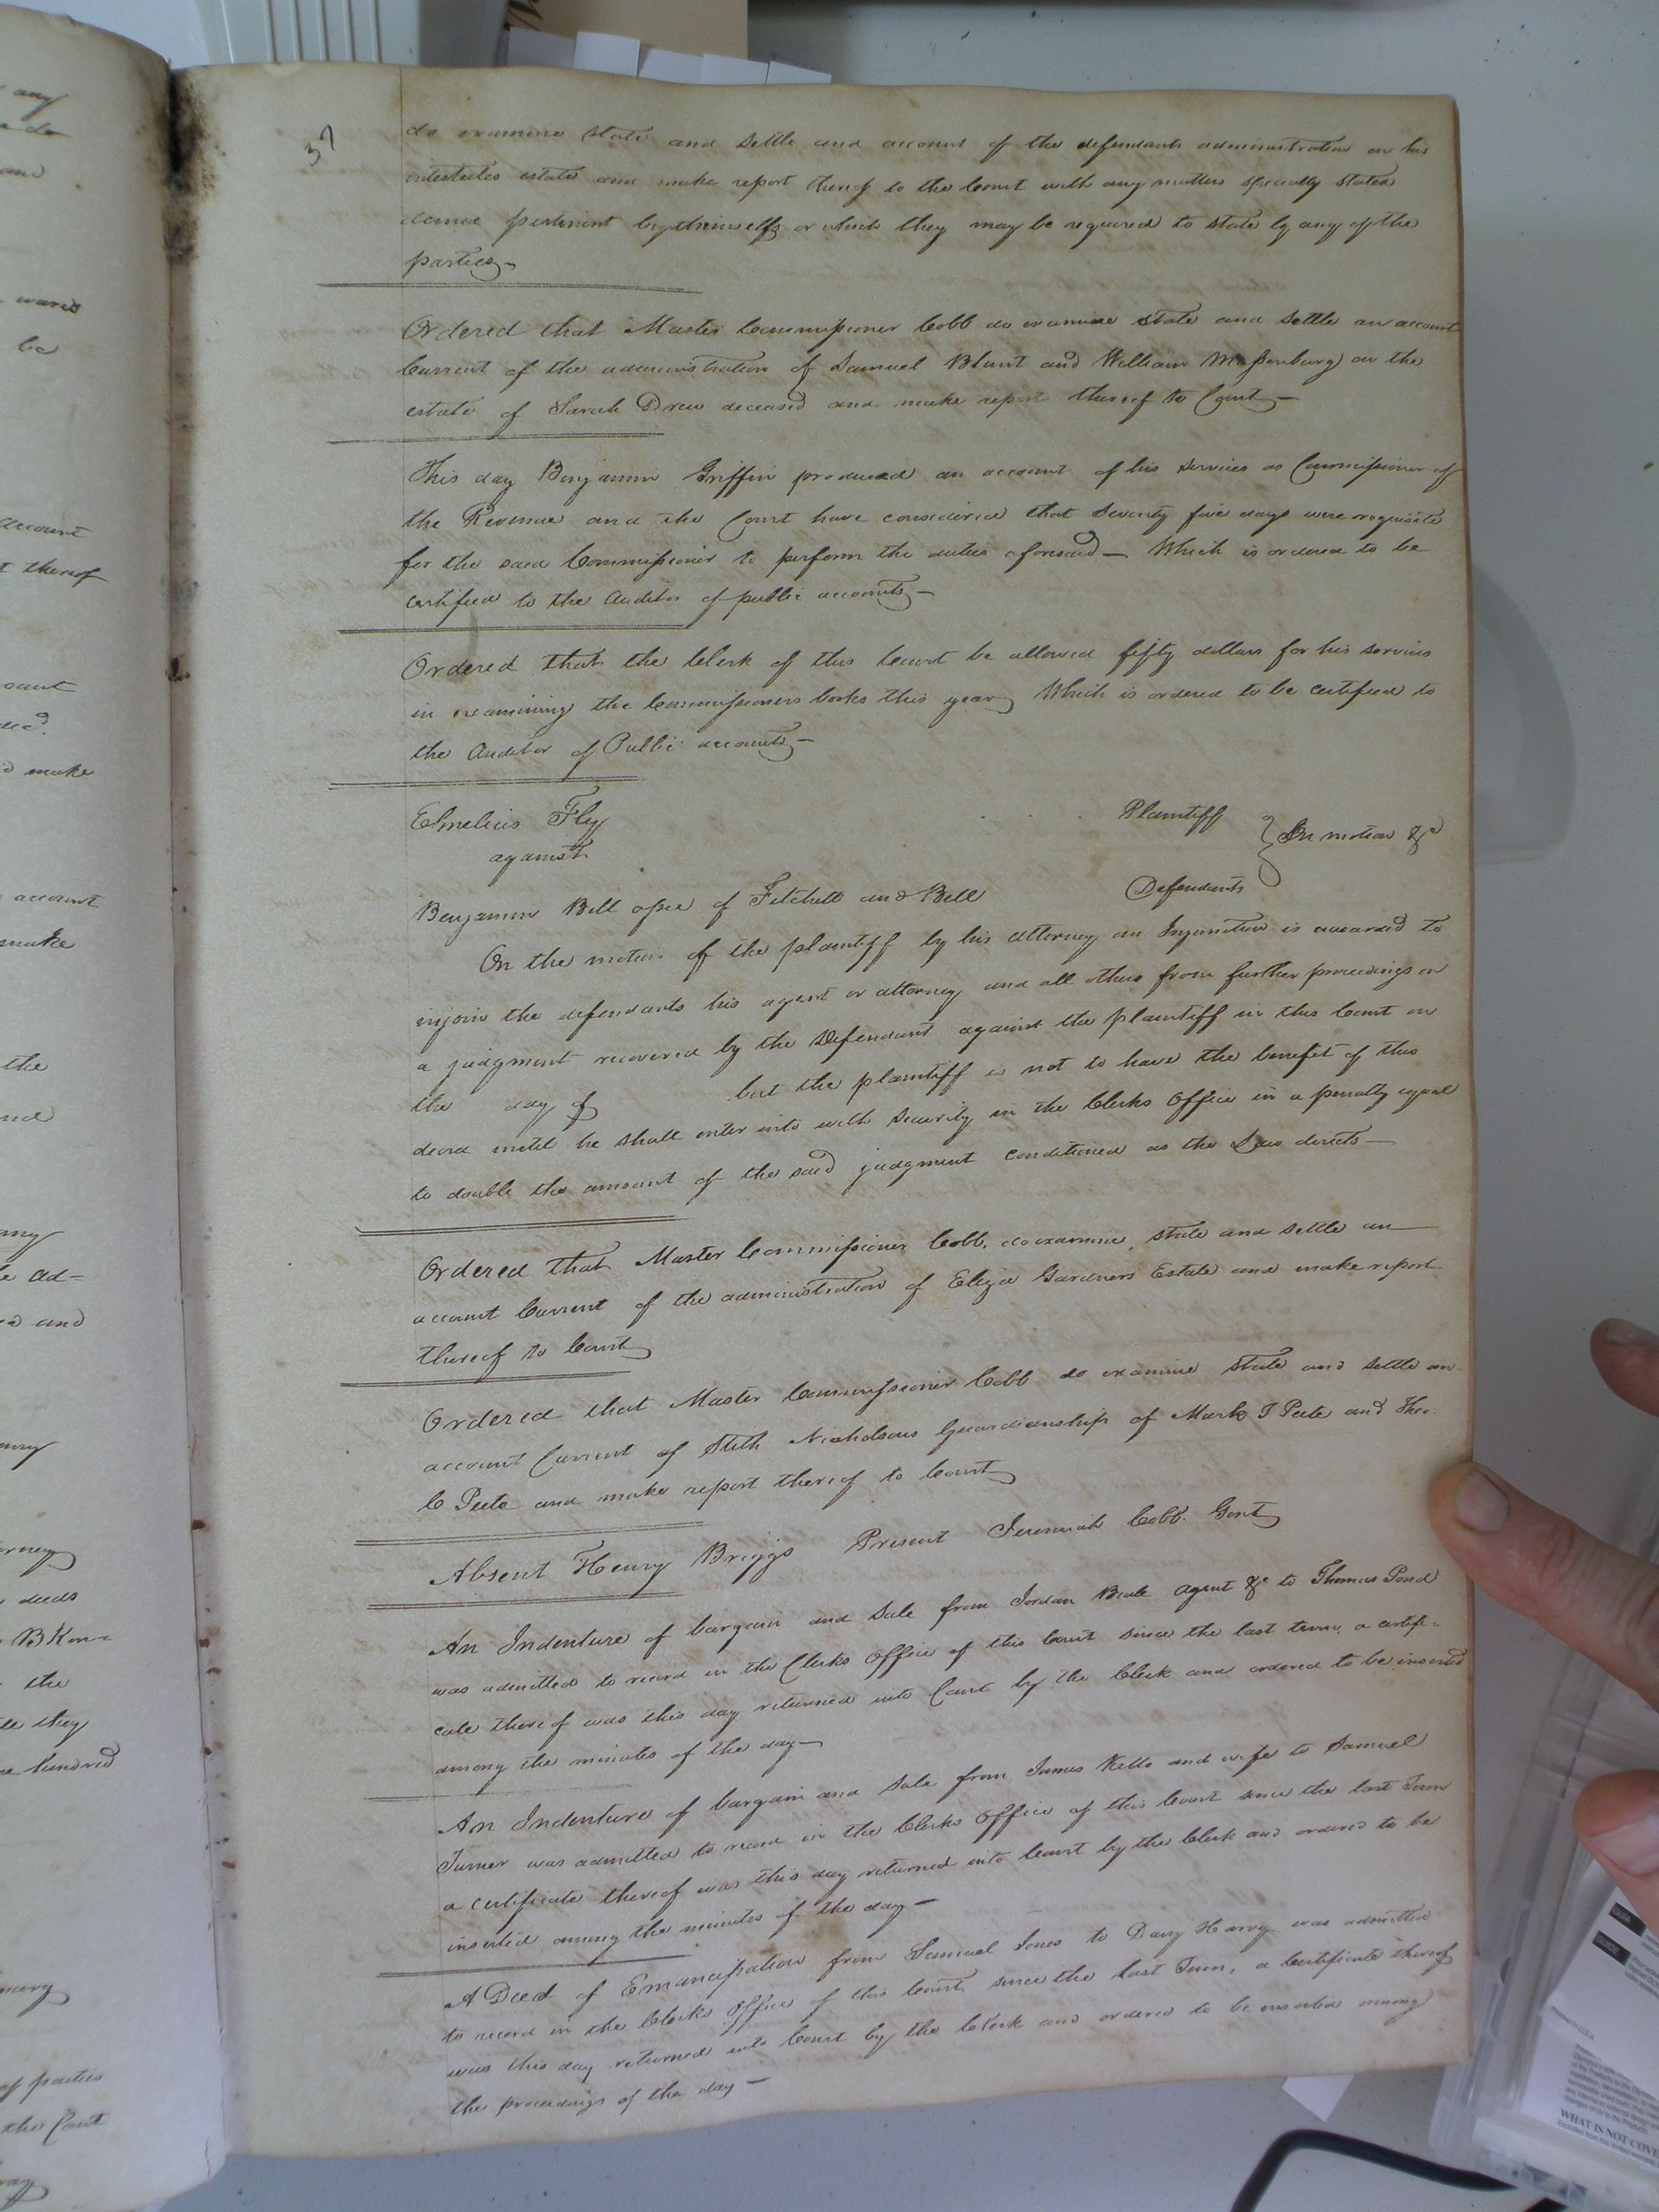 37
do examine state and settle and account of the defendants administration on his
intestates estate and make report thereof to the Court with any matters specially stated
deemed pertinent by themselves or which they may be required to state by any of the
parties
Ordered that Master Commissioner Cobb do examine state and settle an account
Current of the administration of Samuel Blunt and William Massenburg on the
estate of Sarah Drew deceased and make report thereof to Court
This day Benjamin Griffin produced an account of his services as Commissioner of
the Revenue and the Court have considered that Seventy five days were requisite
for the said Commissioner to perform the duties aforesaid — Which is ordered to be
certified to the Auditor of public accounts
Ordered that the Clerk of this Court be allowed fifty dollars for his services
in examining the Commissioners books this year Which is ordered to be certified to
the Auditor of Public accounts
Elmelius Fly Plaintiff
against On motion &c
Benjamin Bell assee of Fitchett and Bell Defendants
On the motion of the plaintiff by his attorney an Injunction is awarded to
injoin the defendants his agent or attorney and all others from further proceedings on
a judgment recovered by the Defendant against the plaintiff in this Court on
the day of but the plaintiff is not to have the benefit of this
until he shall enter into with security in the Clerks Office in a penalty equal
to double the amount of the said judgment conditioned as the Law directs
Ordered that Master Commissioner Cobb, do examine, state and settle an
account Current of the administration of Eliza Gardners Estate and make report
thereof to Court
Ordered that Master Commissioner Cobb do examine state and settle an
account Current of Stith Nicholsons Guardianship of Mark T Peete and Theo.
C Peete and make report thereof to Court
Absent Henry Briggs Present Jeremiah Cobb. Gent
An Indenture of bargain and sale from Jordan Beale agent &c to Thomas Pond
was admitted to record in the Clerks office of this Court since the last term, a certifi-
cate thereof was this day returned into Court by the Clerk and ordered to be inserted
among the minutes of the day
An Indenture of bargain and sale from James Kello and wife to Samuel
Turner was admitted to record in the Clerks office of this Court since the last Term
a certificate thereof was this day returned into Court by the Clerk and ordered to be
inserted among the minutes of the day
A Deed of Emancipation from Samuel Jones to Davy Harvy was admitted
to record in the Clerks Office of this Court, since the last Term, a Certificate thereof
was this day returned into Court by the Clerk and ordered to be inserted among
the proceedings of the day